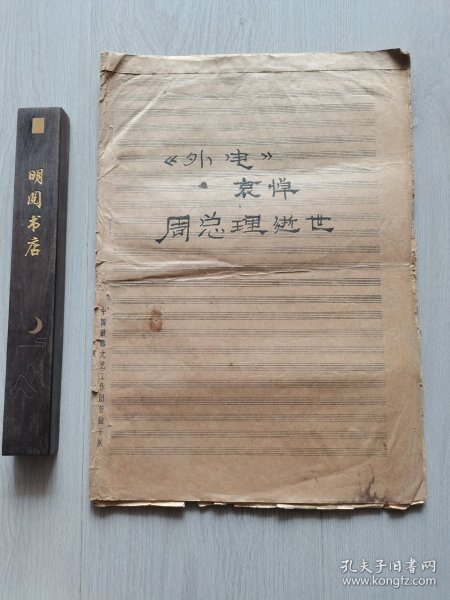 《外电》
哀悼
周总理逝世
中国铁路文艺工作团
明阅书店
孔夫子旧书网
www.kongfz.com